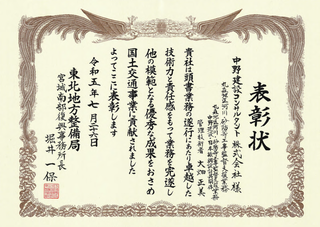 表彰状
中野建設コンサルタント株式会社 様
管理技術者 大畑 正美
貴社は頭書業務の遂行にあたり卓越した
技術力と責任感をもって業務を完遂し
他の模範となる優秀な成果をおさめ
国土交通事業に貢献されました
よってここに表彰します
令和五年七月二十六日
東北地方整備局
宮城南部復興事務所長
堀井 一保